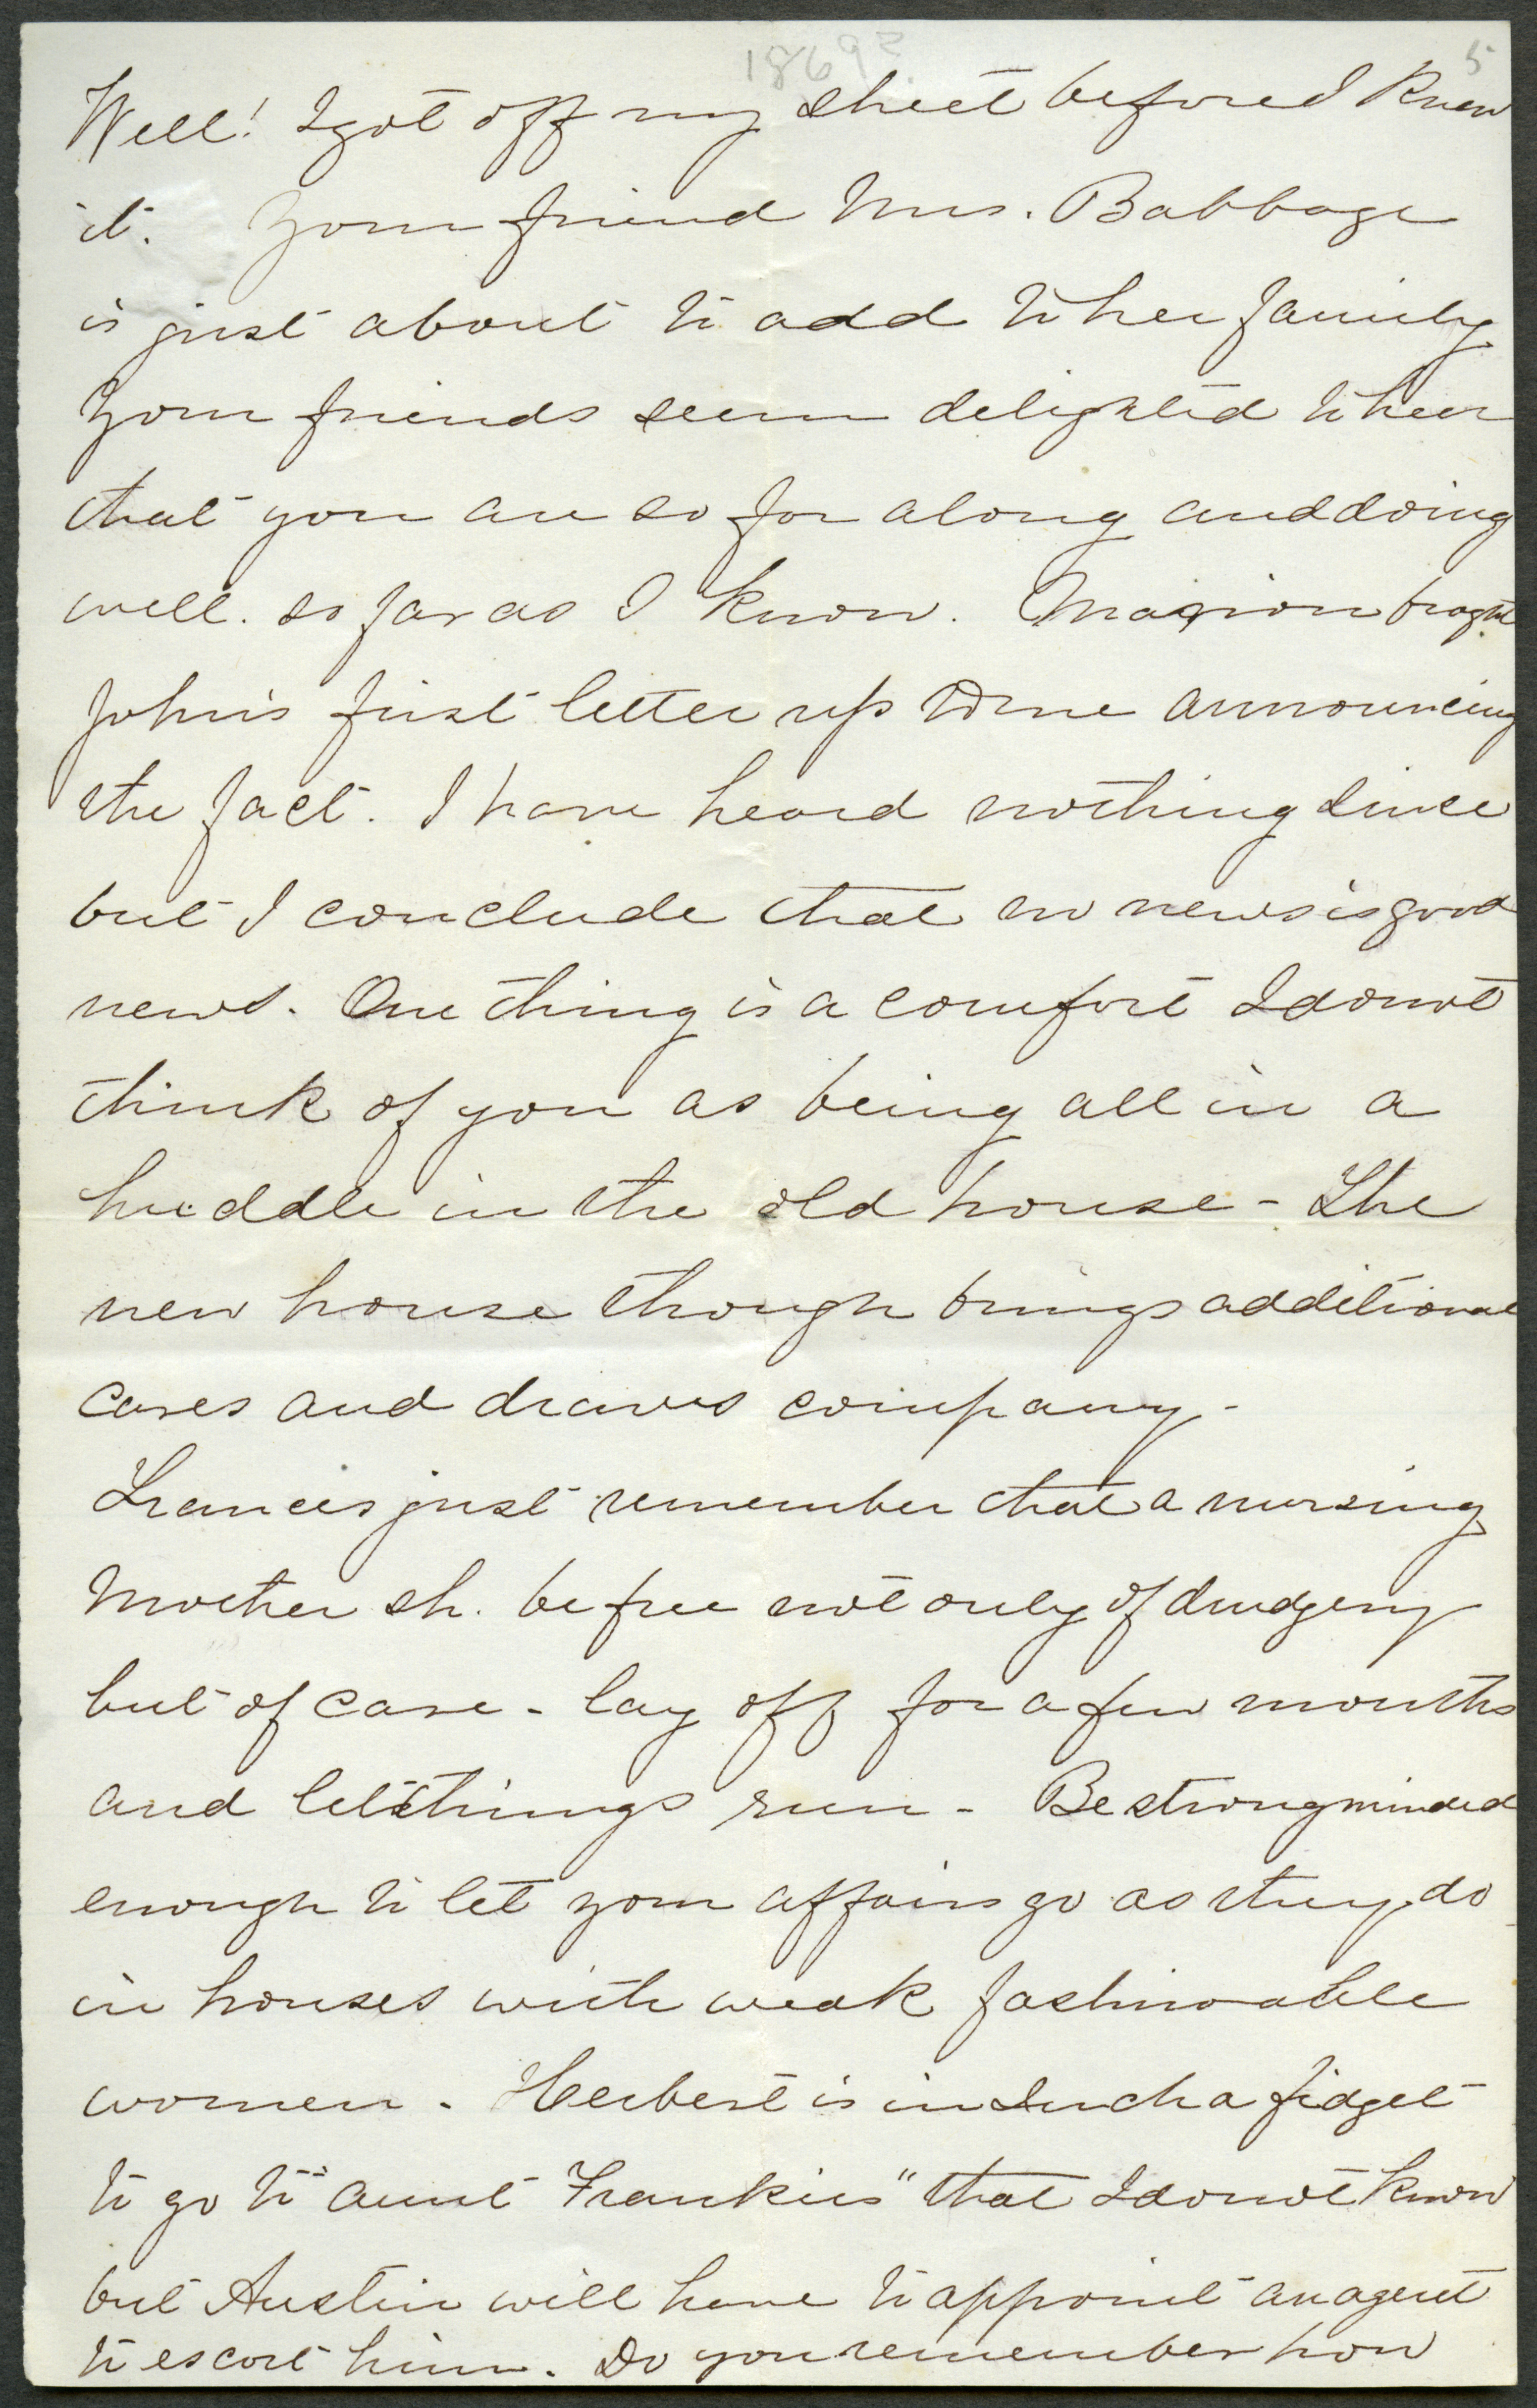 1869?
5
Well! I got off my sheet before I knew
it. Your friend Mrs. Babbage
is just about to add to her family
Your friends seem delighted to hear
that you are so far along and doing
well. so far as I know. Marion brought
John's first letter up to me announcing
the fact. I have heard nothing since
but I conclude that no news is good
news. One thing is a comfort I do not
think of you as being all in a
huddle in the old house - The
new house though brings additional
cares and draws company -
Francis just remember that a nursing
Mother sh. be free not only of drudgery
but of care - lay off for a few months
and let things run - Be strong minded
enough to let your affairs go as they do
in houses with weak fashionable
women - Herbert is in such a fidget
to go to "aunt Frankies" that I do not know
but Austin will have to appoint an agent
to escort him. Do you remember how